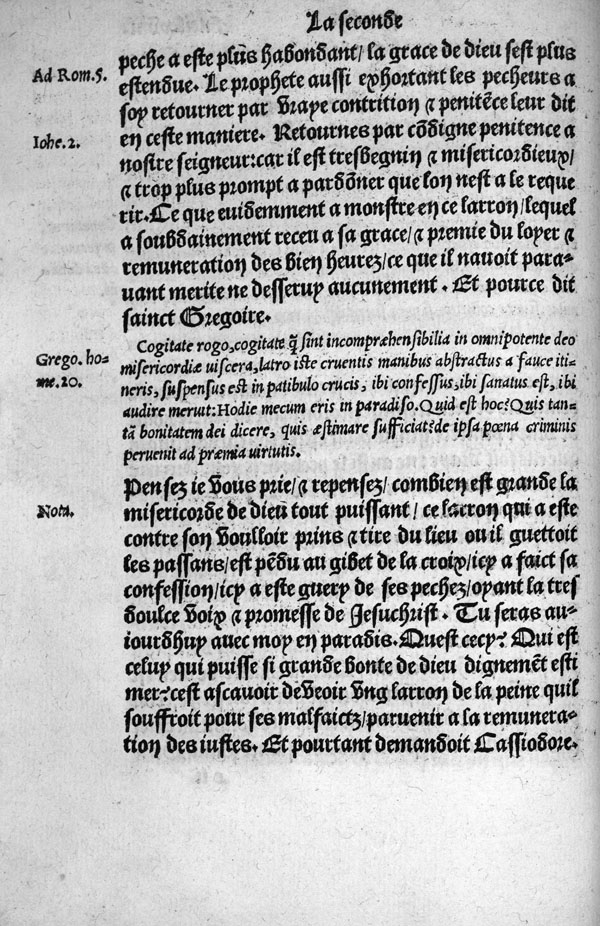 La seconde
peche a este plũs habondant/ la grace de dieu sest plus
Ad Rom. 5.
estendue. Le prophete aussi exhortant les pecheurs a
soy retourner par vraye contrition ⁊ penitẽce leur dit
Iohe. 2.
en ceste maniere. Retournes par cõdigne penitence a
nostre seigneur: car il est tresbegnin ⁊ misericordieux/
⁊ trop plus prompt a pardõner que lon nest a le reque
rir. Ce que euidemment a monstre en ce larron/ lequel
a soubdainement receu a sa grace/ ⁊ premie du loyer ⁊
remuneration des bien heurez/ ce que il nauoit para-
uant merite ne desseruy aucunement. Et pource dit
sainct Gregoire.
Cogitate rogo, cogitate q̃ sint incompræhensibilia in omnipotente deo
Grego. ho-
me. 20.
misericordiæ uiscera, latro iste cruentis manibus abstractus a fauce iti-
neris, suspensus est in patibulo crucis, ibi confessus, ibi sanatus est, ibi
audire meruit: Hodie mecum eris in paradiso. Quid est hoc? Quis tan-
tã bonitatem dei dicere, quis æstimare sufficiat? de ipsa pœna criminis
peruenit ad præmia uirtutis.
Pensez ie vous prie/ ⁊ repensez/ combien est grande la
Nota.
misericorde de dieu tout puissant/ ce lacron qui a este
contre son voulloir prins ⁊ tire du lieu ou il guettoit
les passans/ est pẽdu au gibet de la croix/ icy a faict sa
confession/ icy a este guery de ses pechez/ oyant la tres
doulce voix ⁊ promesse de Jesuchrist. Tu seras au-
iourdhuy auec moy en paradis. Quest cecy? Qui est
celuy qui puisse si grande bonte de dieu dignemẽt esti
mer? cest ascauoir deveoir vng larron de la peine quil
souffroit pour ses malfaictz/ paruenir a la remunera-
tion des iustes. Et pourtant demandoit Cassiodore.